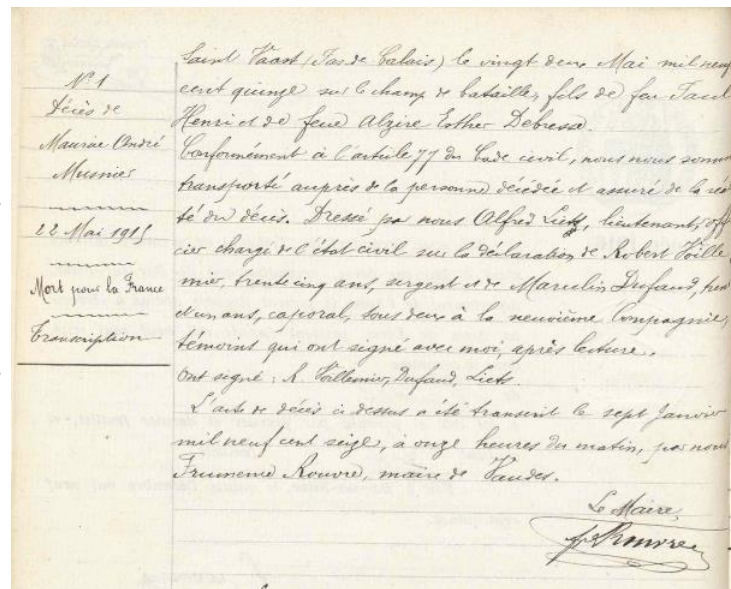 Nº 1
Décès de
Maurice André
Musnier
22 Mai 1915
Mort pour la France
Transcription
Saint Vaast (Pas de Calais) le vingt deux Mai mil neuf
cent quinze sur le champ de bataille, fils de feu Paul
Henri et de feue Alzire Esther Debresse.
Conformément à l'article 77 du Code civil, nous nous somme
transporté auprès de la personne décédée et assuré de la réa
té du décès. Dressé par nous Alfred Liets, lieutenant, off
cier chargé de l'état civil sur la déclaration de Robert Voille
mier, trente cinq ans, sergent et de Marcelin Dufaud, tren
et un ans, caporal, tous deux à la neuvième Compagnie,
témoins qui ont signé avec moi, après lecture.
Ont signé : R. Voillemier, Dufaud, Liets.
L'acte de décès ci dessus a été transcrit le sept Janvier
mil neuf cent seize, à onze heures du matin, par nous
Frumence Rouvre, maire de Vaudes.
Le Maire,
Rouvre